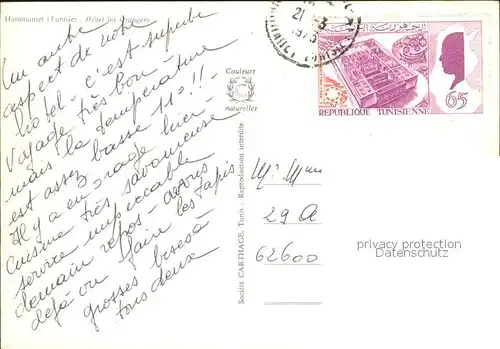 Hammamet (Tunisie) - Hôtel les Orangers
Un autre
aspect de votre
hôtel - c'est superbe
Voyage très bon
mais la température
est assez basse 11° !! -
Il y a eu orage hier -
Cuisine très savoureuse
service impeccable
demain repos - avons
déjà vu faire les tapis
grosses bises à
tous deux
Couleurs
naturelles
Société CARTHAGE, Tunis - Reproduction interdite
21 -3
1973
REPUBLIQUE TUNISIENNE
65
الجمهورية التونسية
Mr Mme
29 A
62600
privacy protection
Datenschutz